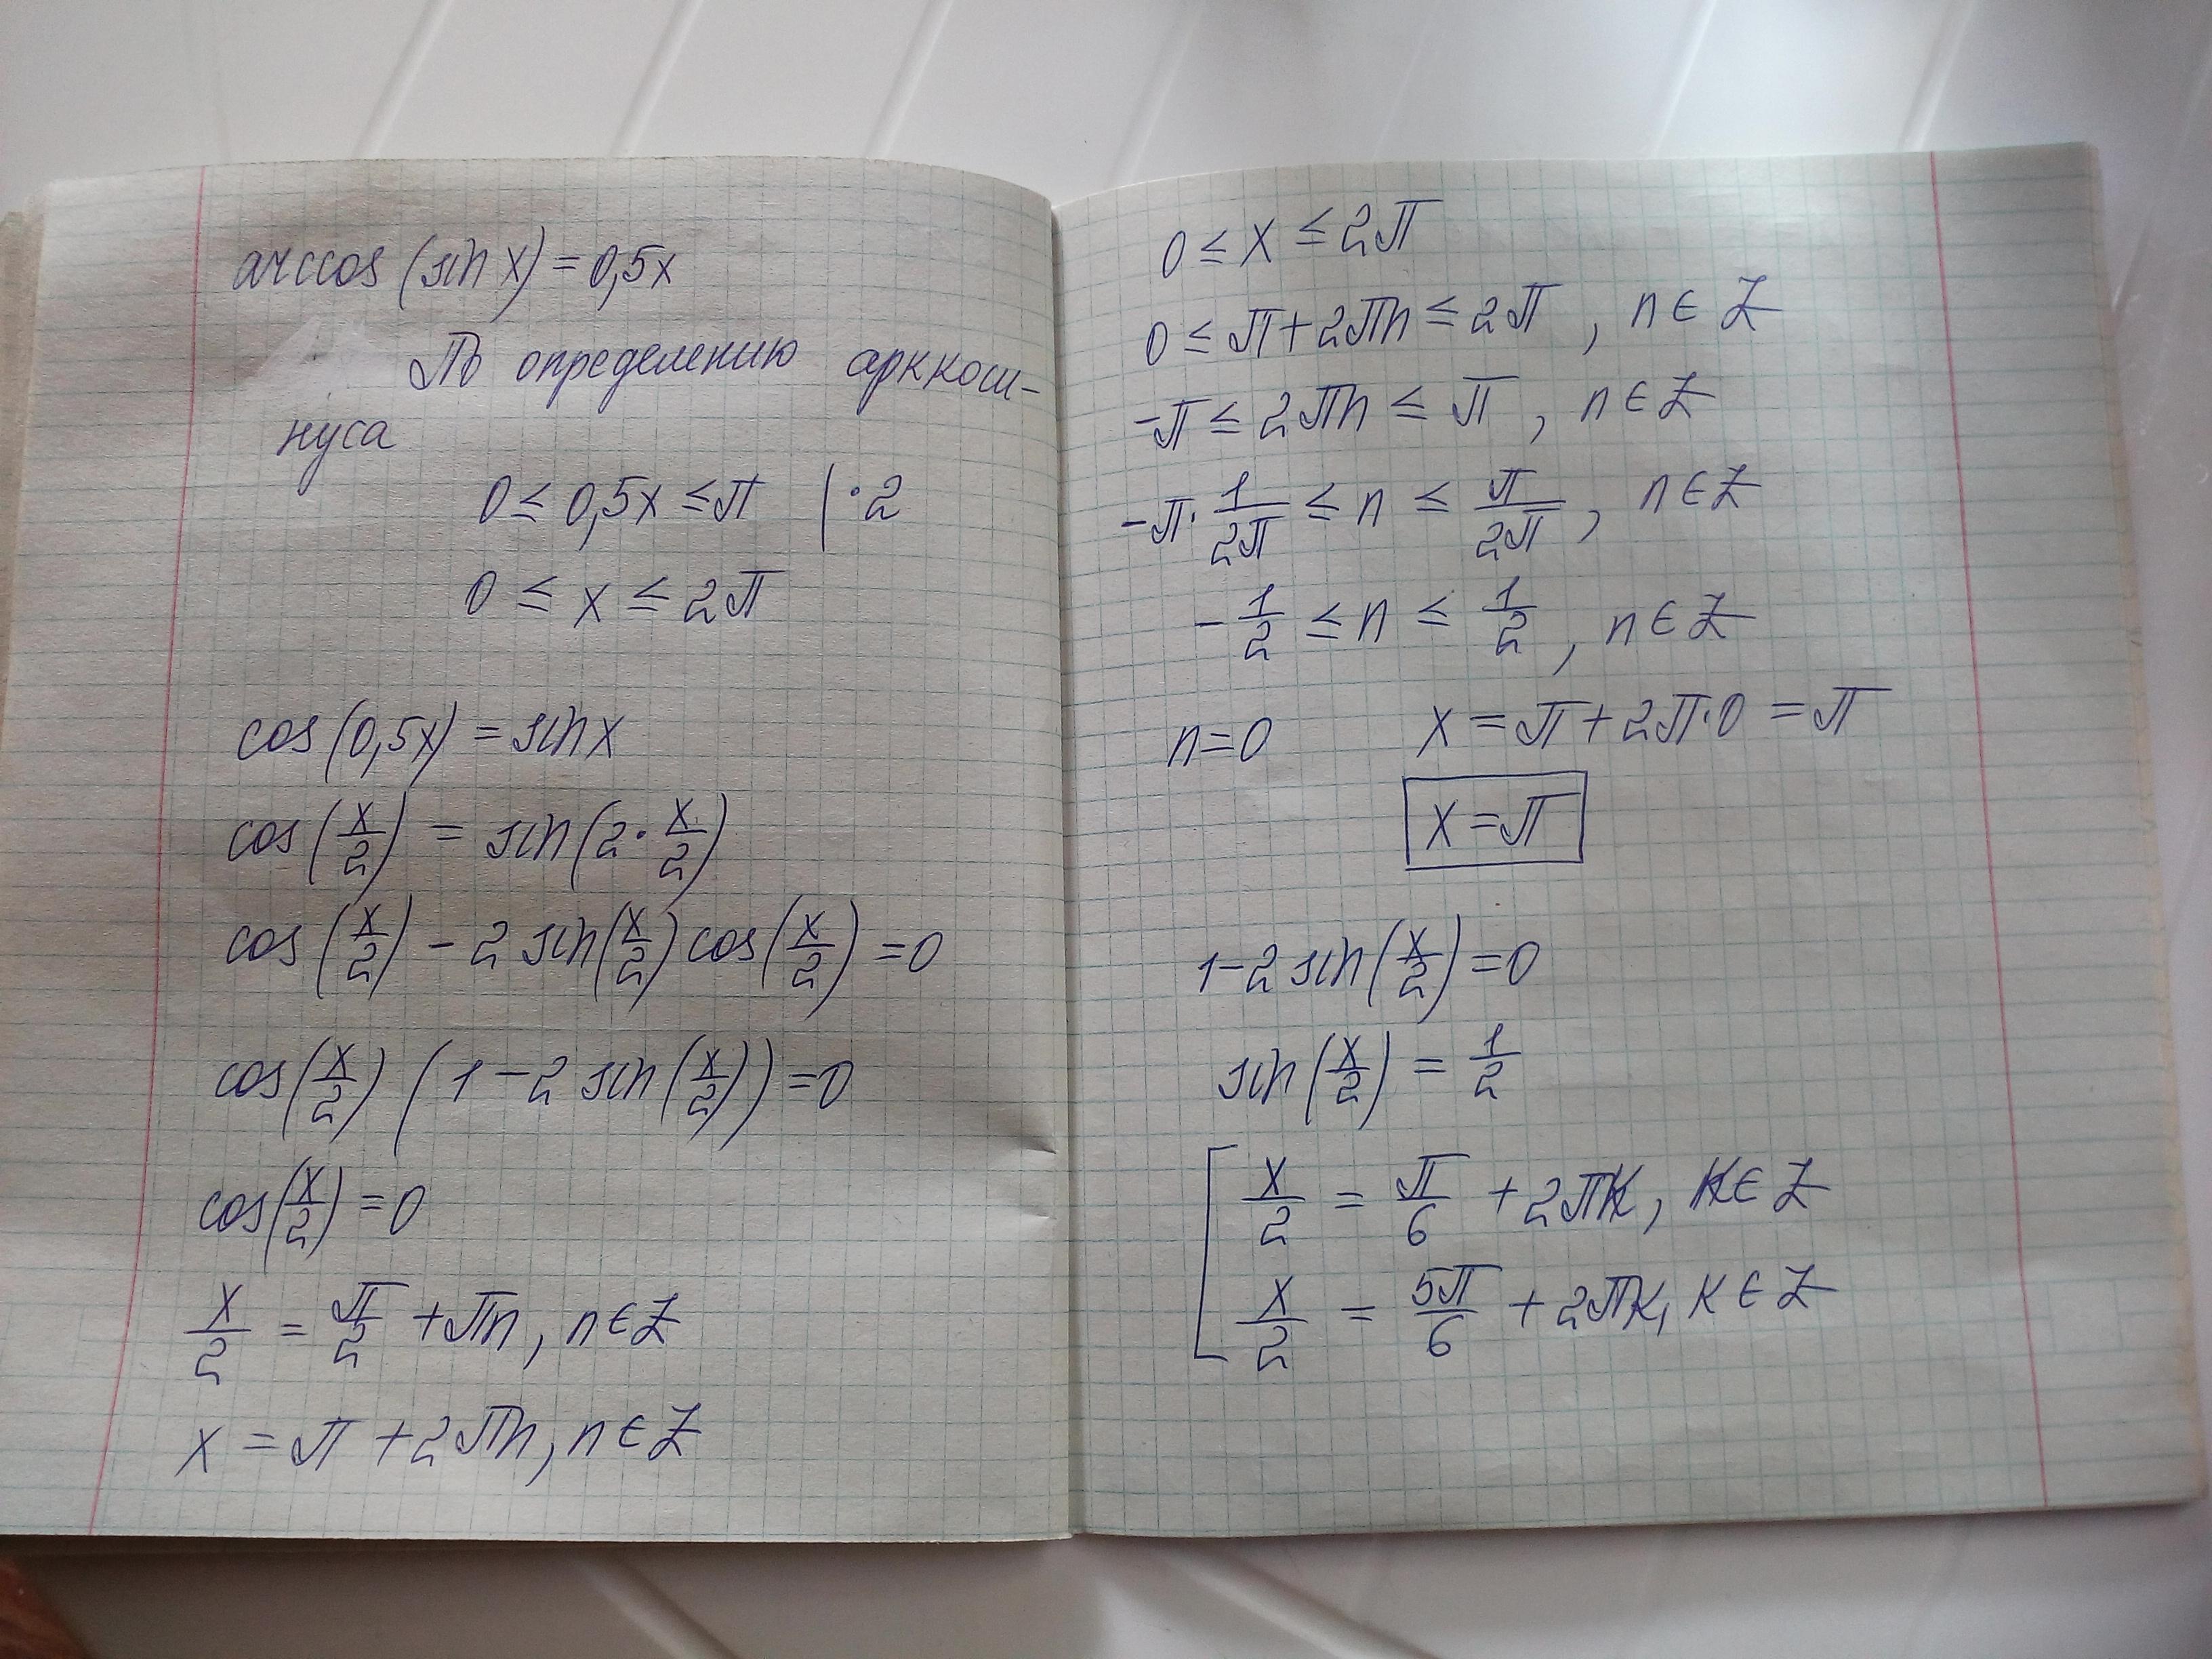 arccos (sin x) = 0,5x
По определению арккоси-
нуса
0 ≤ 0,5x ≤ π | · 2
0 ≤ x ≤ 2π
cos(0,5x) = sin x
cos(x/2) = sin(2 · x/2)
cos(x/2) - 2 sin(x/2) cos(x/2) = 0
cos(x/2) (1 - 2 sin(x/2)) = 0
cos(x/2) = 0
x/2 = π/2 + πn, n ∈ Z
x = π + 2πn, n ∈ Z
0 ≤ x ≤ 2π
0 ≤ π + 2πn ≤ 2π, n ∈ Z
-π ≤ 2πn ≤ π, n ∈ Z
-π · 1/2π ≤ n ≤ π/2π, n ∈ Z
-1/2 ≤ n ≤ 1/2, n ∈ Z
n = 0 x = π + 2π · 0 = π
x = π
1 - 2 sin(x/2) = 0
sin(x/2) = 1/2
[ x/2 = π/6 + 2πk, k ∈ Z
x/2 = 5π/6 + 2πk, k ∈ Z